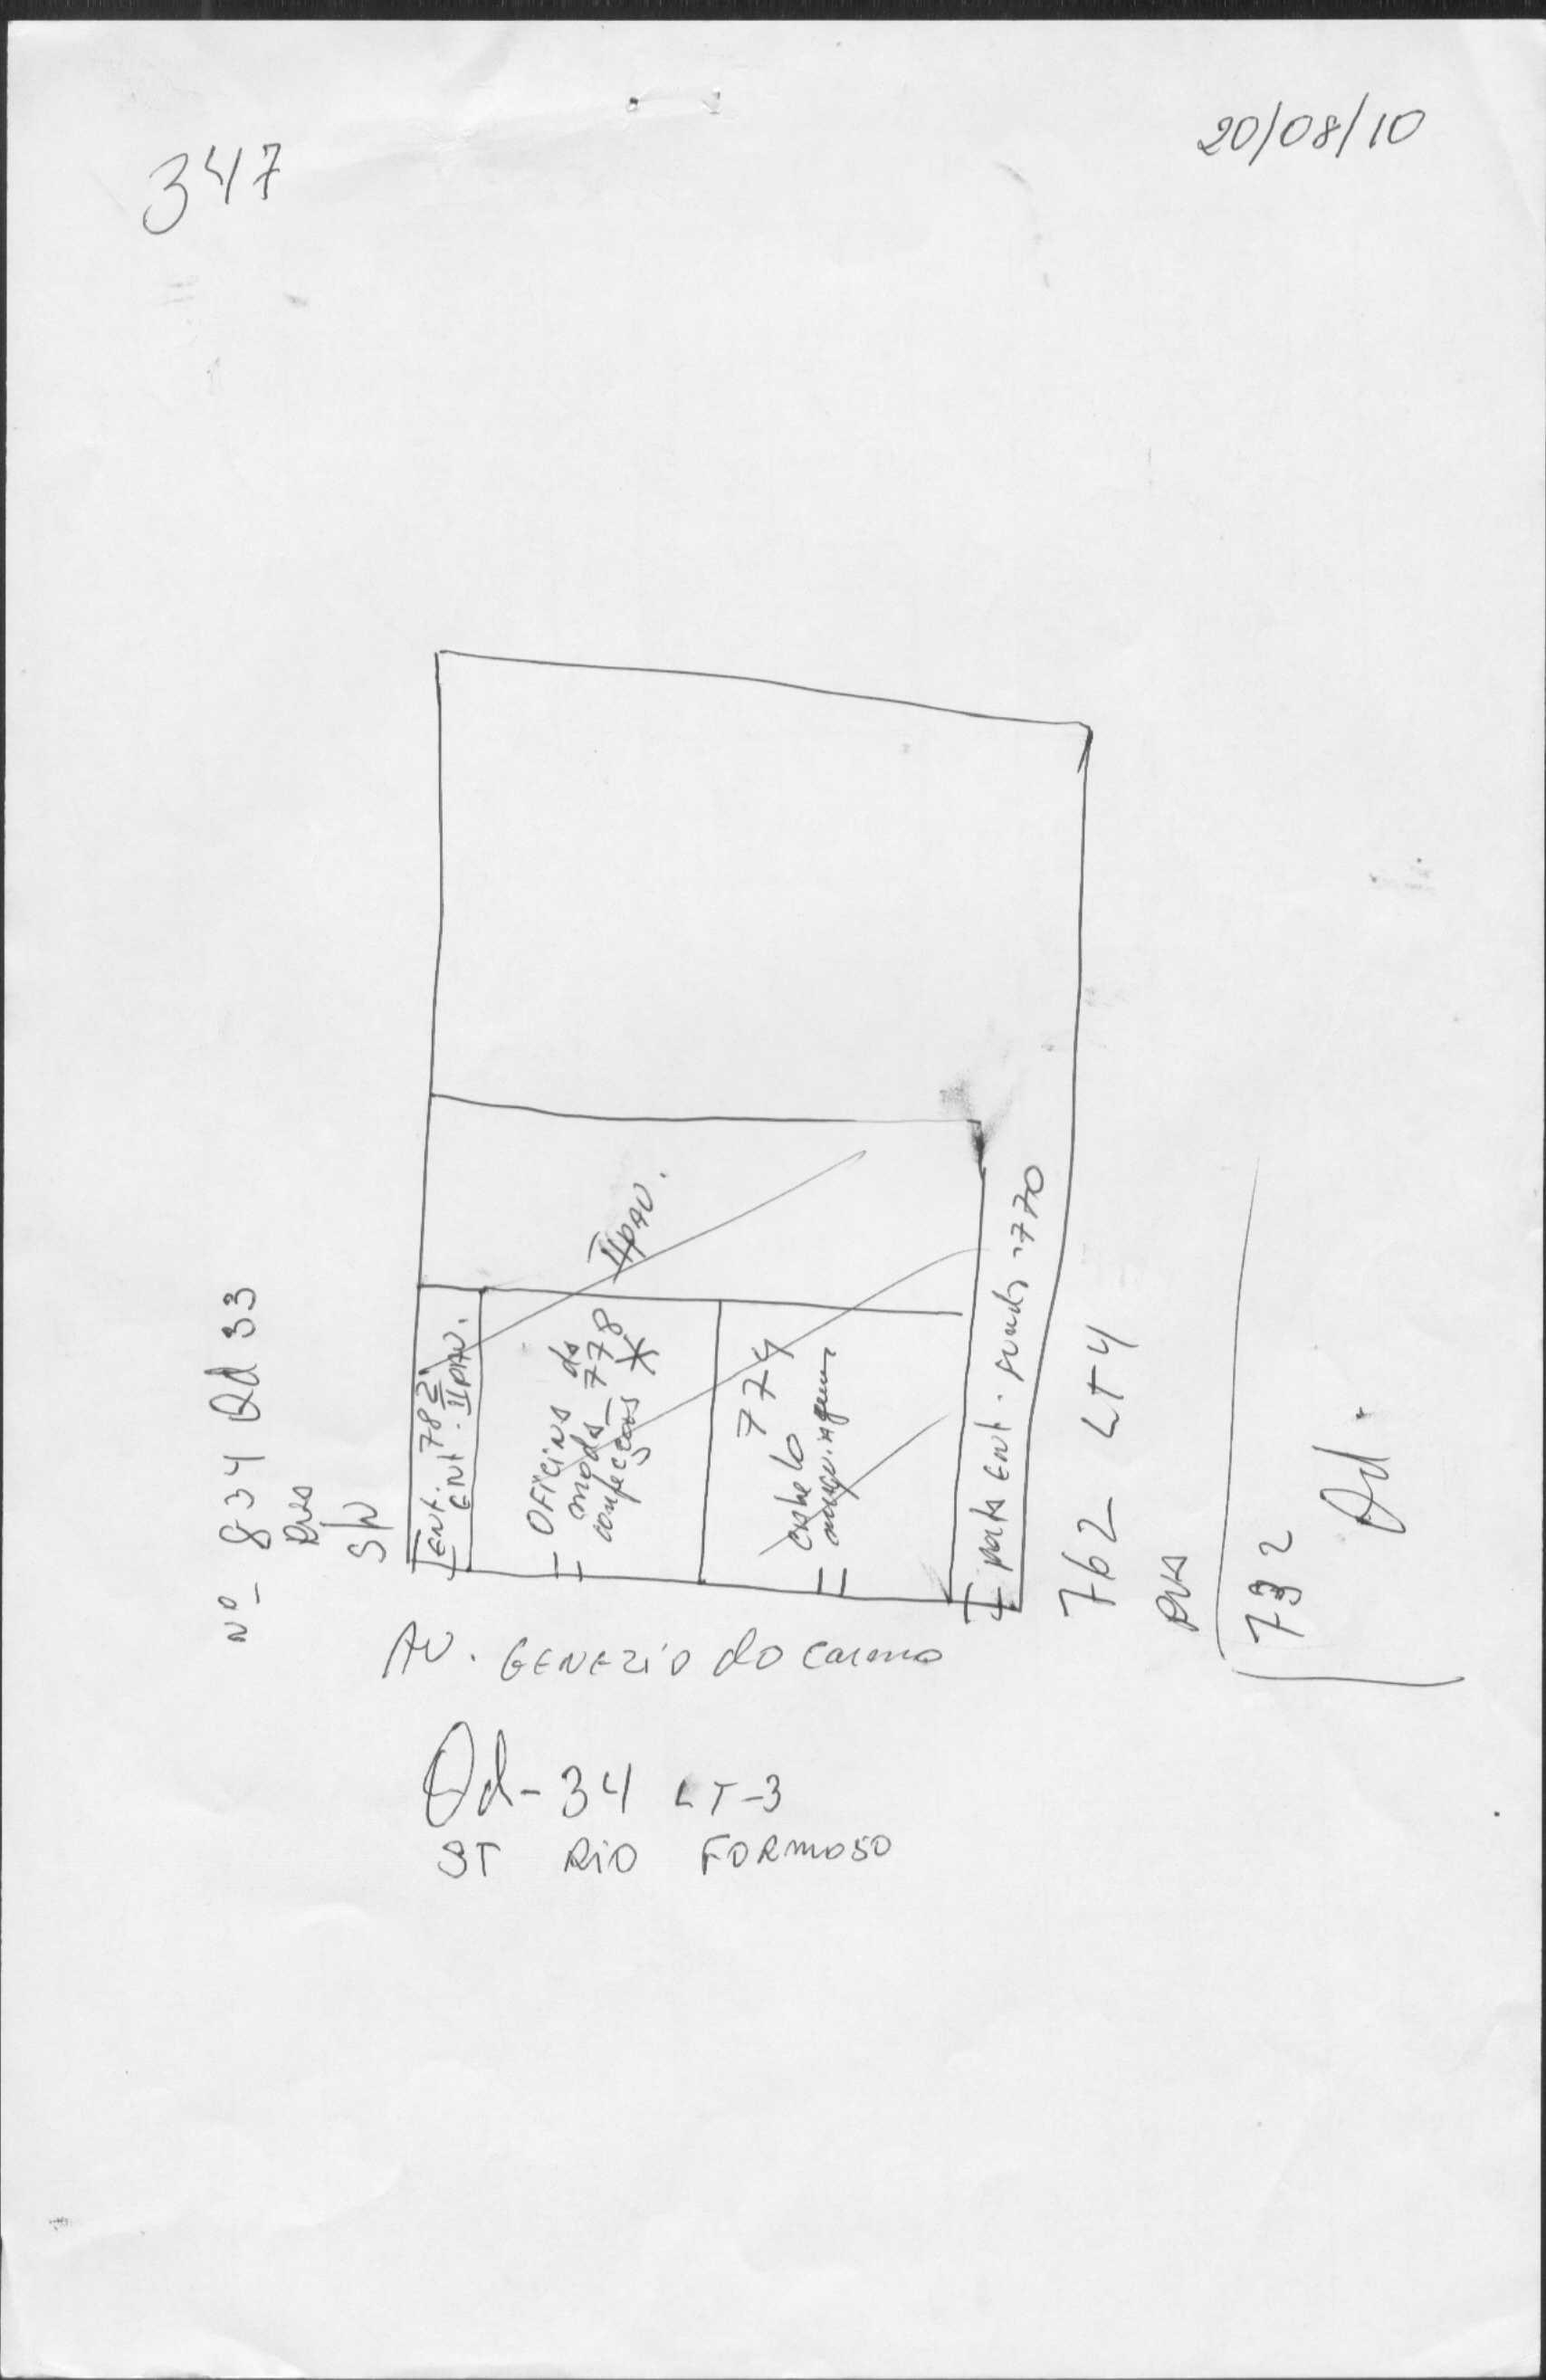 347
20/08/10
Nº- 834 Qd 33
RUA
S/N
Ent. 782
Ent. II PAV.
II PAV.
OFicina da
moda - 778
confecções *
774
porta Ent. fundos 770
762 LT4
RUA
732
Qd.
AV. GENEZiO do Carmo
Qd-34 LT-3
ST RiO FORmoso